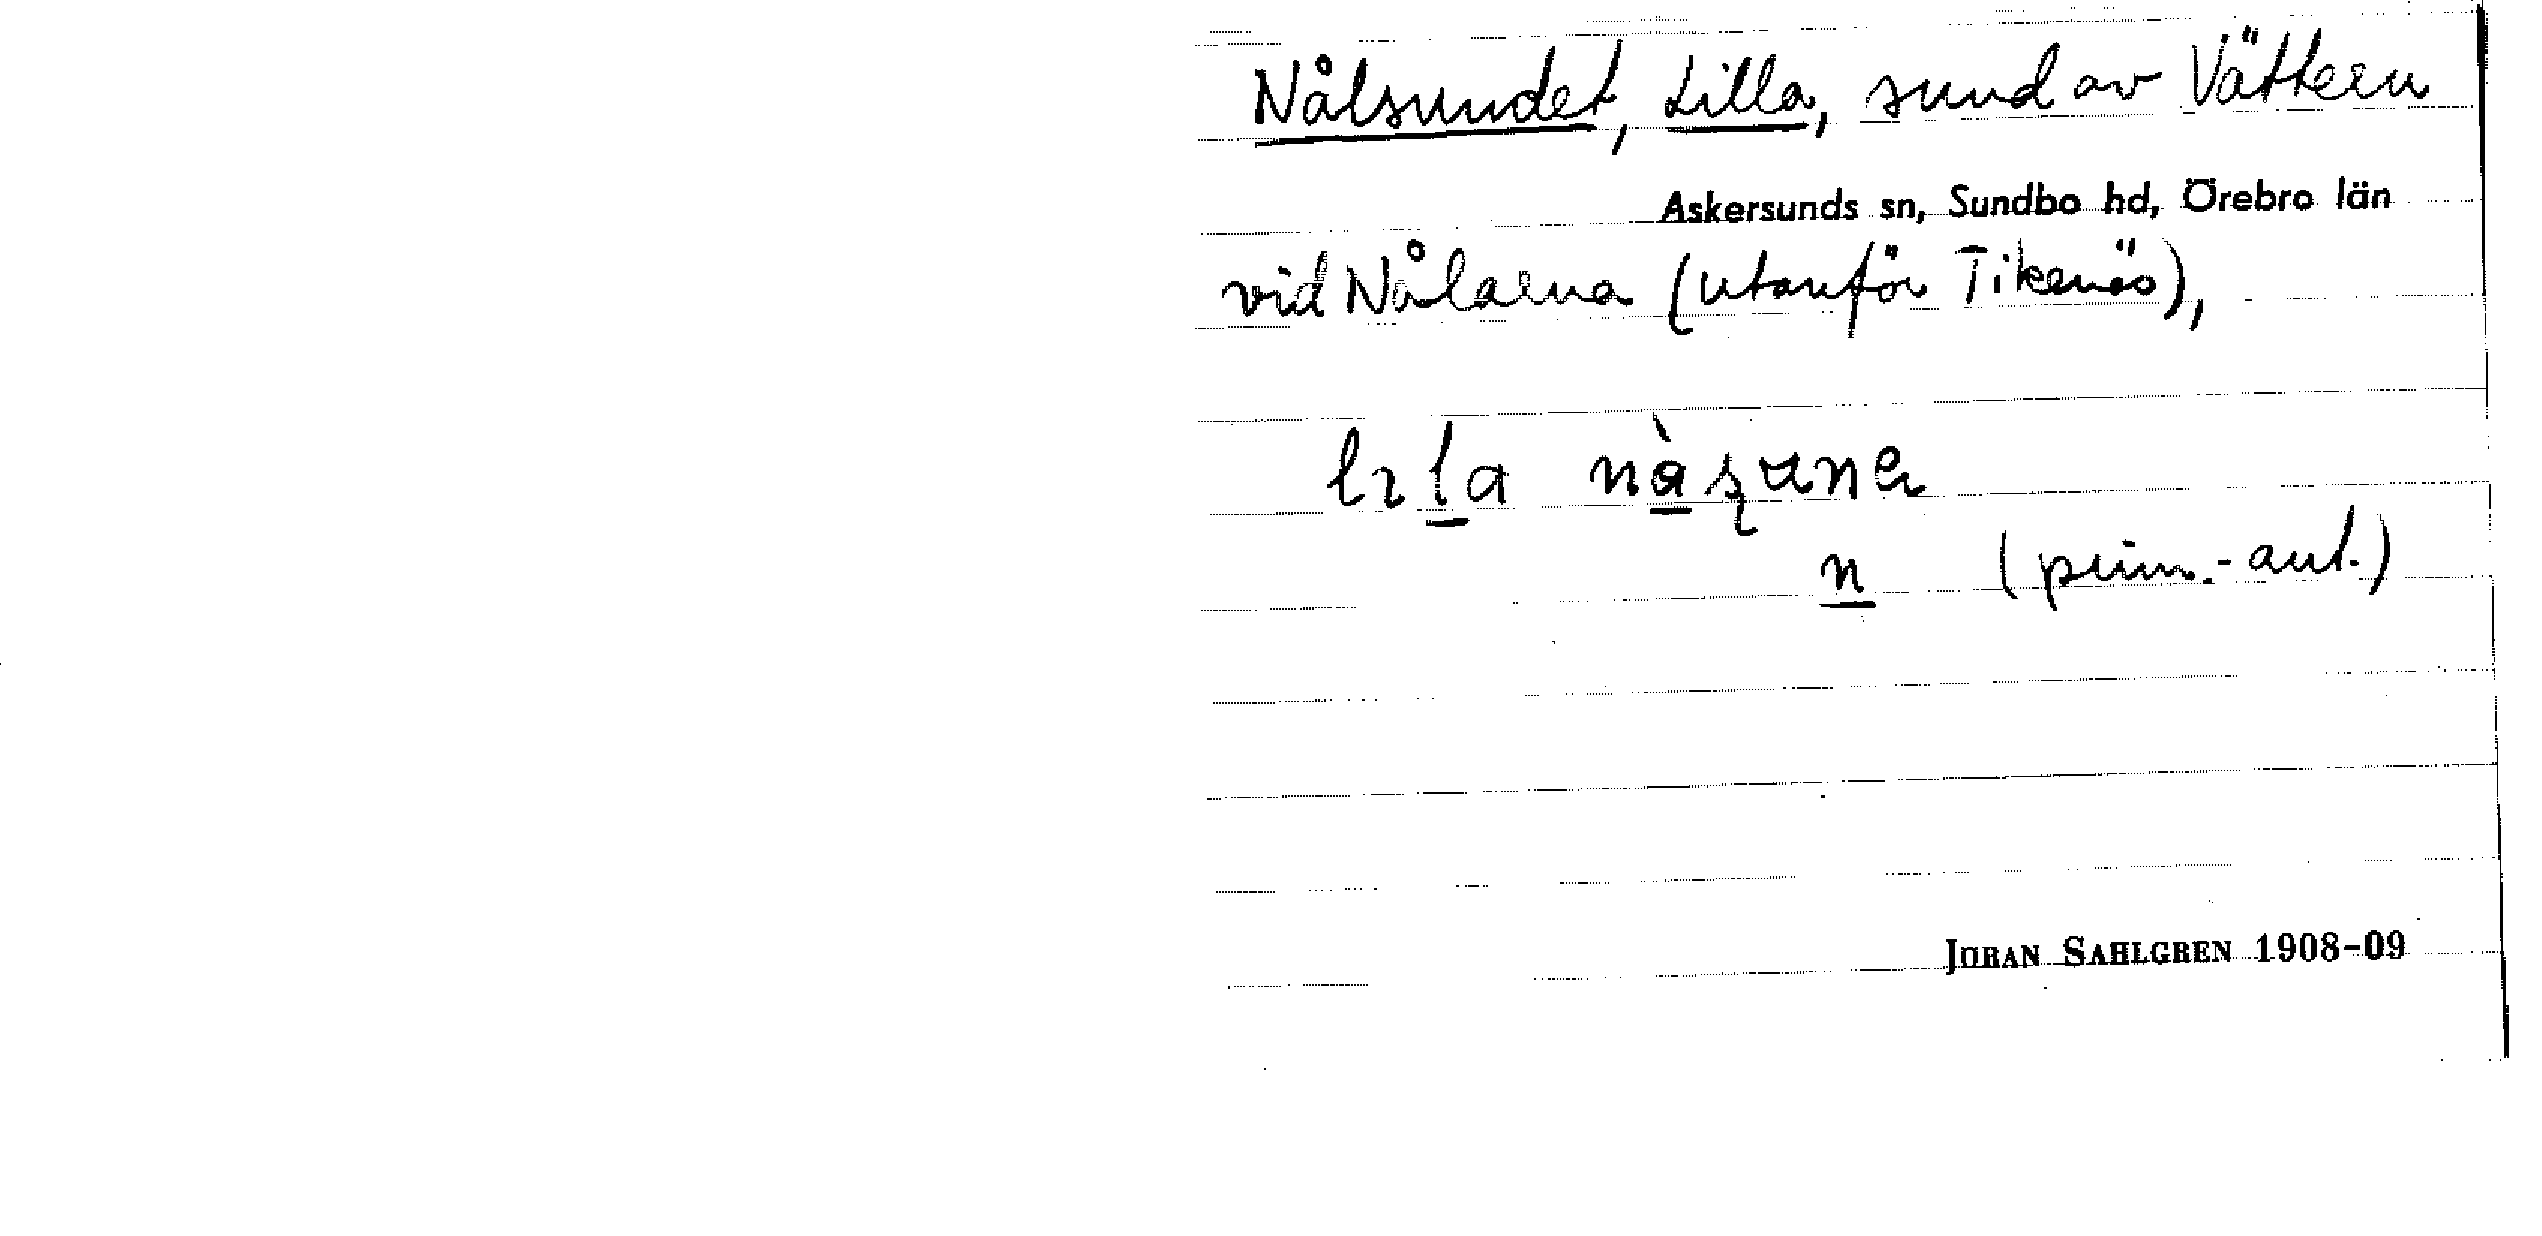 Nålsundet, Lilla, sund av Vättern
Askersunds sn, Sundbo hd, Örebro län
vid Nålarna (utanför Tikanäs),
n (prim.-ant.)
JÖRAN SAHLGREN 1908-09